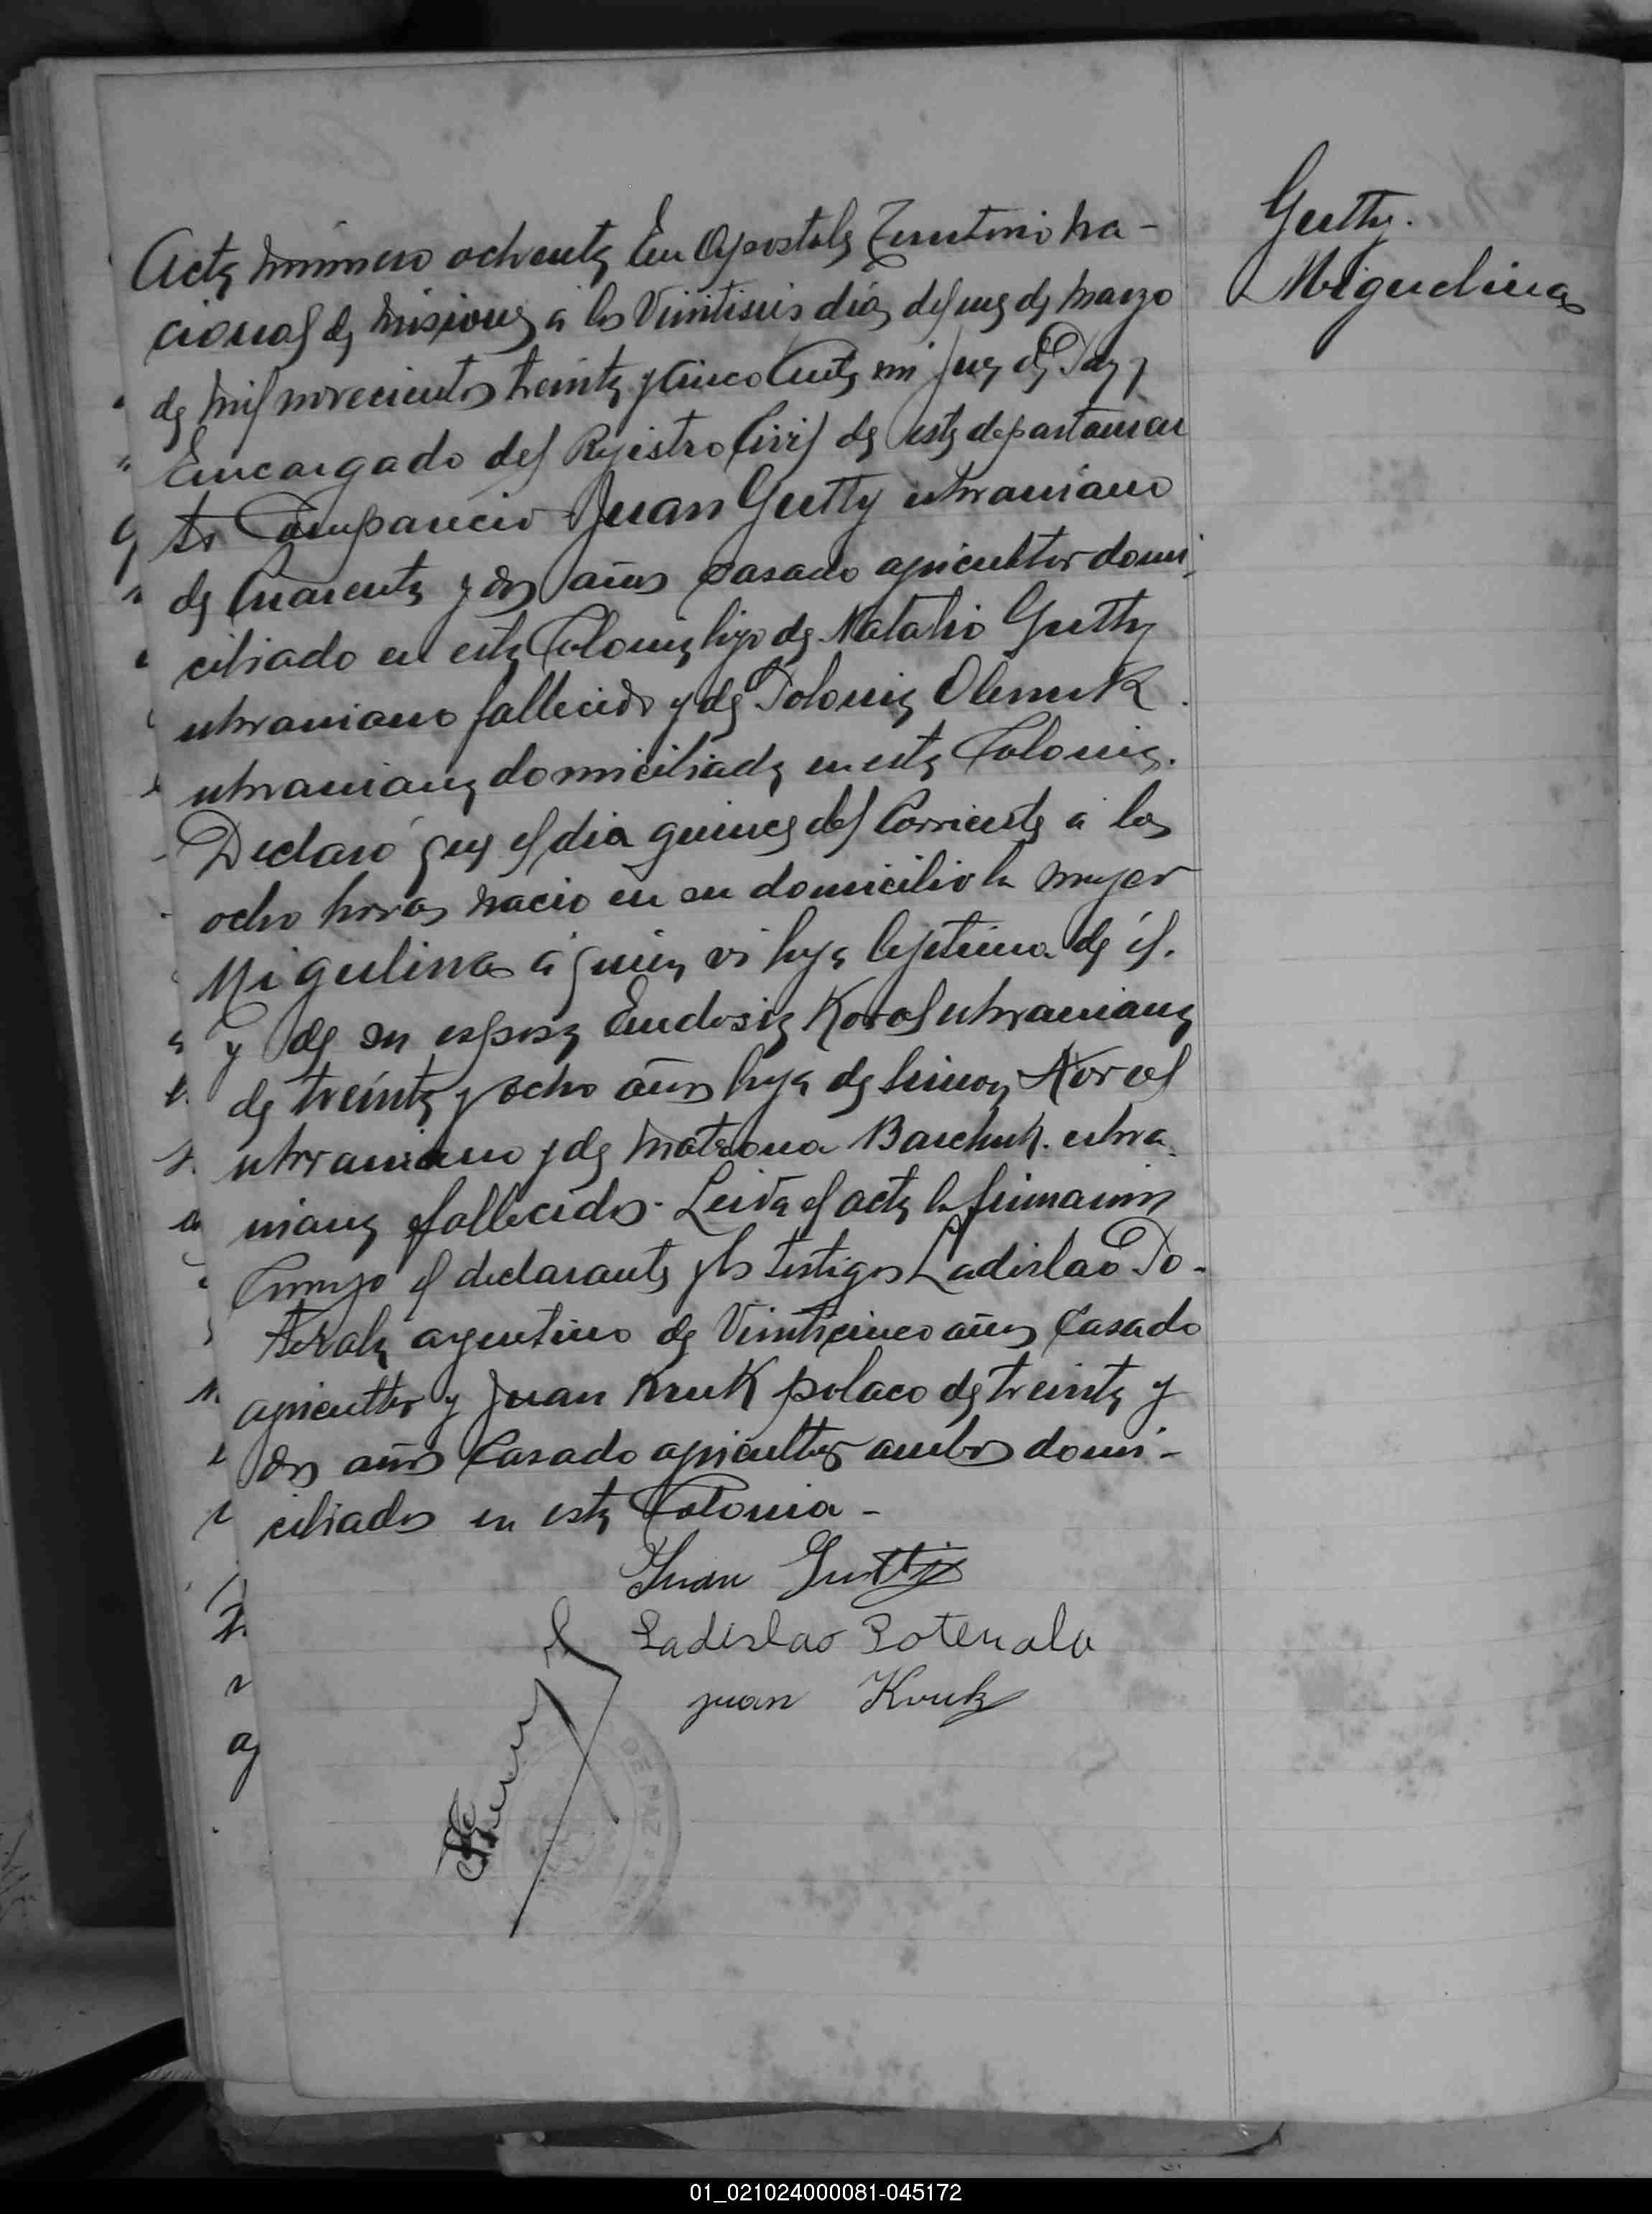 Gutty.
Miguelina
Acta número ochenta En Apostoles Territorio Na-
cional de Misiones a los Veintiseis días del mes de Marzo
de mil novecientos treinta y cinco Ante mi Juez de Paz y
Encargado del Rejistro Civil de este departamen
to Comparecio Juan Gutty ukraniano
de Cuarenta y dos años casado agricultor domi
ciliado en esta Colonia hijo de Natalio Gutty
ukraniano fallecido y de Polonia Olenuk
ukraniana domiciliada en esta Colonia.
Declaró que el dia quince del Corriente a las
ocho horas nacio en su domicilio la mujer
Migulina a quien vi hija lejitima de él.
y de su esposa Eudosia Korol ukraniana
de treinta y ocho años hija de Simon Korol
ukraniano y de Matrona Barchuk. ukra
niana fallecidos. Leida el acta la firmaron
Conmigo el declarante y los testigos Ladislao Po-
terala argentino de Veinticinco años Casado
agricultor y Juan Kruk polaco de treinta y
dos años Casado agricultor ambos domi-
ciliados en esta Colonia -
Juan Gutty
Ladislao Poterala
juan Kruk
DE PAZ
01_021024000081-045172